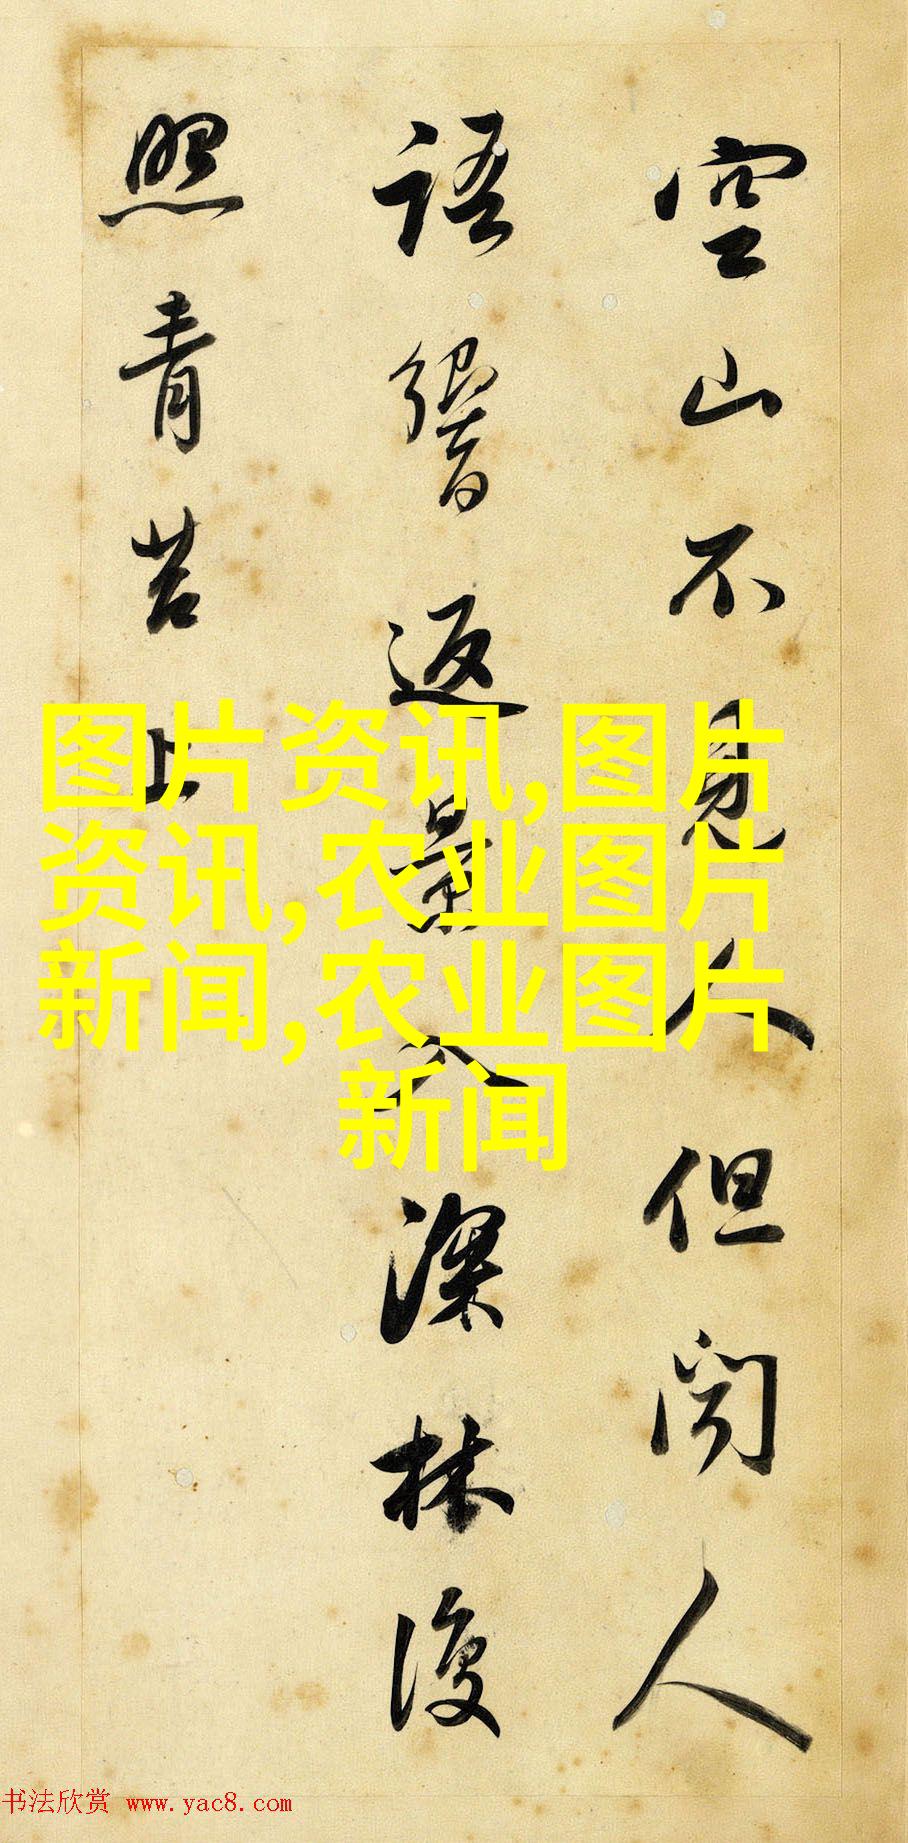 空山不見人但闻人
语響返景入深林復
照青苔上
图片资讯,图片
资讯,农业图片
新闻,农业图片
新闻
书法欣赏 www.yac8.com